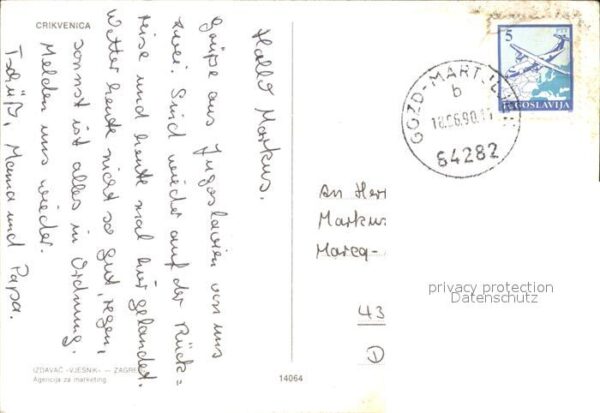 CRIKVENICA
Hallo Markus.
Grüße aus Jugoslavien von uns
zwei. Sind wieder auf der Rück=
reise und heute mal hier gelandet.
Wetter heute nicht so gut, regen,
sonst ist alles in Ordnung.
Melden uns wieder.
Tschüß, Mama und Papa.
IZDAVAČ »VJESNIK« — ZAGREB
Agencija za marketing
14064
5
JUGOSLAVIJA
GOZD-MARTULJEK
b
18.06.90.
64282
An Herr
Markus
Marcq-
43
D
privacy protection
Datenschutz